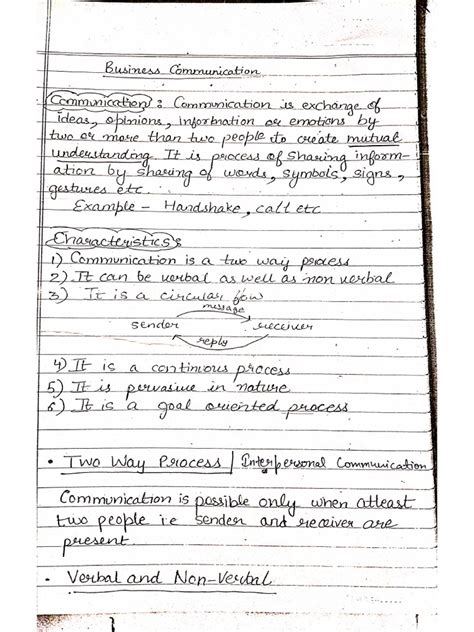 Business Communication
Communication: Communication is exchange of
ideas, opinions, information or emotions by
two or more than two people to create mutual
understanding. It is process of sharing inform-
ation by sharing of words, symbols, signs,
gestures etc.
Example - Handshake, call etc
Characteristics:
1) Communication is a two way process
2) It can be verbal as well as non verbal
3) It is a circular fow
message
sender receiver
reply
4) It is a continous process
5) It is pervasive in nature
6) It is a goal oriented process
• Two Way Process / Interpersonal Communication
Communication is possible only when atleast
two people i.e sender and receiver are
present
• Verbal and Non-Verbal